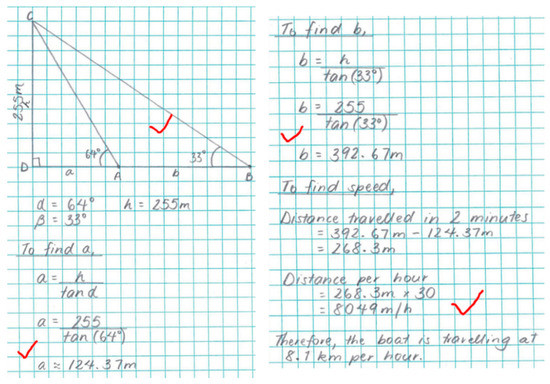 C
255m
64°
33°
D
a
A
b
B
α = 64° h = 255m
β = 33°
To find a,
a = h
tan α
a = 255
tan (64°)
a = 124.37m
To find b,
b = h
tan (33°)
b = 255
tan (33°)
b = 392.67m
To find speed,
Distance travelled in 2 minutes
= 392.67m - 124.37m
= 268.3m
Distance per hour
= 268.3m × 30
= 8049m/h
Therefore, the boat is travelling at
8.1 km per hour.